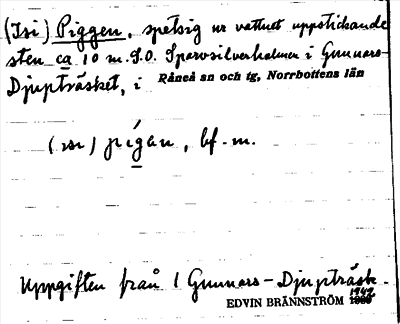 (Isi) Piggen, spetsig ur vattnet uppstickande
sten ca 10 m. S.O. Sparvsilverholmen i Gunnars-
Djupträsket, i Råneå sn och tg, Norrbottens län
(isi) pigan, bf. m.
Uppgiften från 1 Gunnars-Djupträsk.
EDVIN BRÄNNSTRÖM 1942